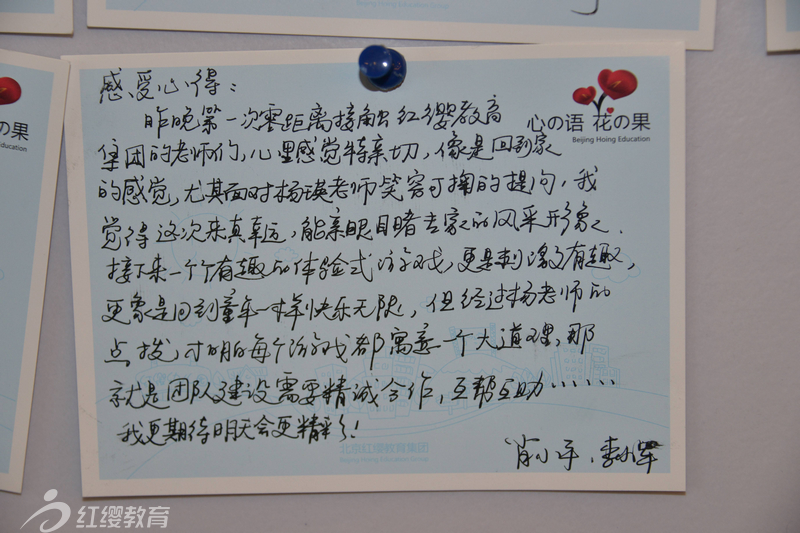 感受心得：
昨晚第一次零距离接触红缨教育
集团的老师们，心里感觉特亲切，像是回到家
的感觉，尤其面对杨瑛老师笑容可掬的提问，我
觉得这次来真幸运，能亲眼目睹专家的风采形象之
接下来一个个有趣的体验式游戏，更是刺激又有趣，
更象是回到童年一样快乐无限，但经过杨老师的
点拨，才明白每个游戏都寓意一个大道理，那
就是团队建设需要精诚合作，互帮互助……
我更期待明天会更精彩！
肖小平、李
心の语 花の果
Beijing Hoing Education
花の果
Hoing Education
北京红缨教育集团
Beijing Hoing Education Group
红缨教育